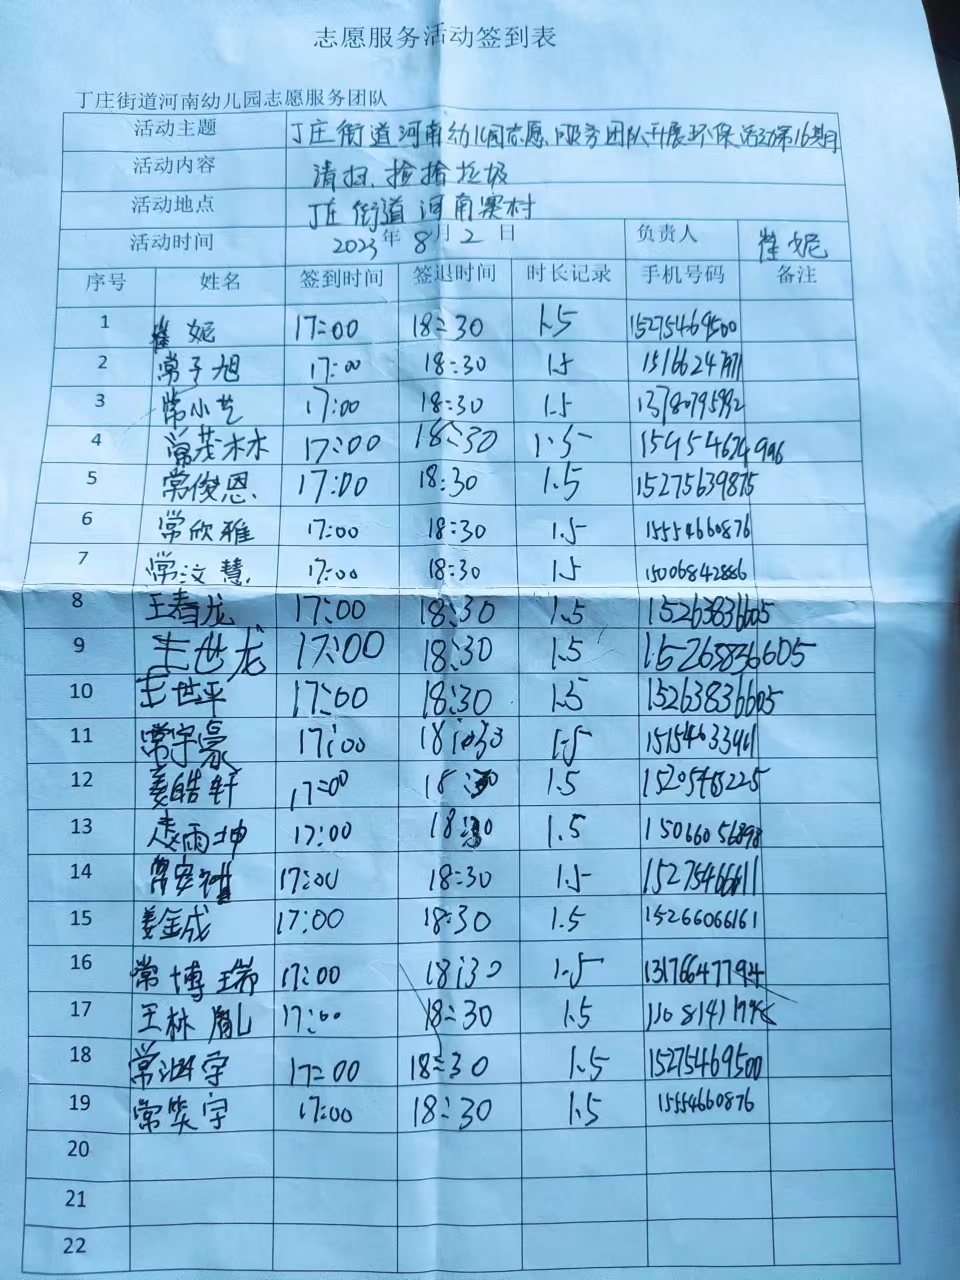 志愿服务活动签到表
丁庄街道河南幼儿园志愿服务团队
活动主题 丁庄街道河南幼儿园志愿服务团队开展环保活动第16期
活动内容 清扫、捡拾垃圾
活动地点 丁庄街道河南寨村
活动时间 2023年8月2日 负责人 崔妮
序号 姓名 签到时间 签退时间 时长记录 手机号码 备注
1 崔妮 17:00 18:30 1.5 15275469500
2 常子旭 17:00 18:30 1.5
3 常小艺 17:00 18:30 1.5 13780795992
4 常茂林 17:00 18:30 1.5
5 常俊恩 17:00 18:30 1.5 15275639875
6 常欣雅 17:00 18:30 1.5 15554660876
7 常汶慧 17:00 18:30 1.5 15006842886
8 王春龙 17:00 18:30 1.5 15263836605
9 王世龙 17:00 18:30 1.5 15263836605
10 王世平 17:00 18:30 1.5 15263836605
11 常宇豪 17:00 18:30 1.5
12 姜皓轩 17:00 18:30 1.5
13 雨坤 17:00 18:30 1.5 15066056898
14 常 17:00 18:30 1.5 15275466611
15 姜金成 17:00 18:30 1.5 15266066161
16 常博瑞 17:00 18:30 1.5 13176647794
17 王林胤 17:00 18:30 1.5
18 常 宇 17:00 18:30 1.5 15275469500
19 常笑宇 17:00 18:30 1.5 15554660876
20
21
22